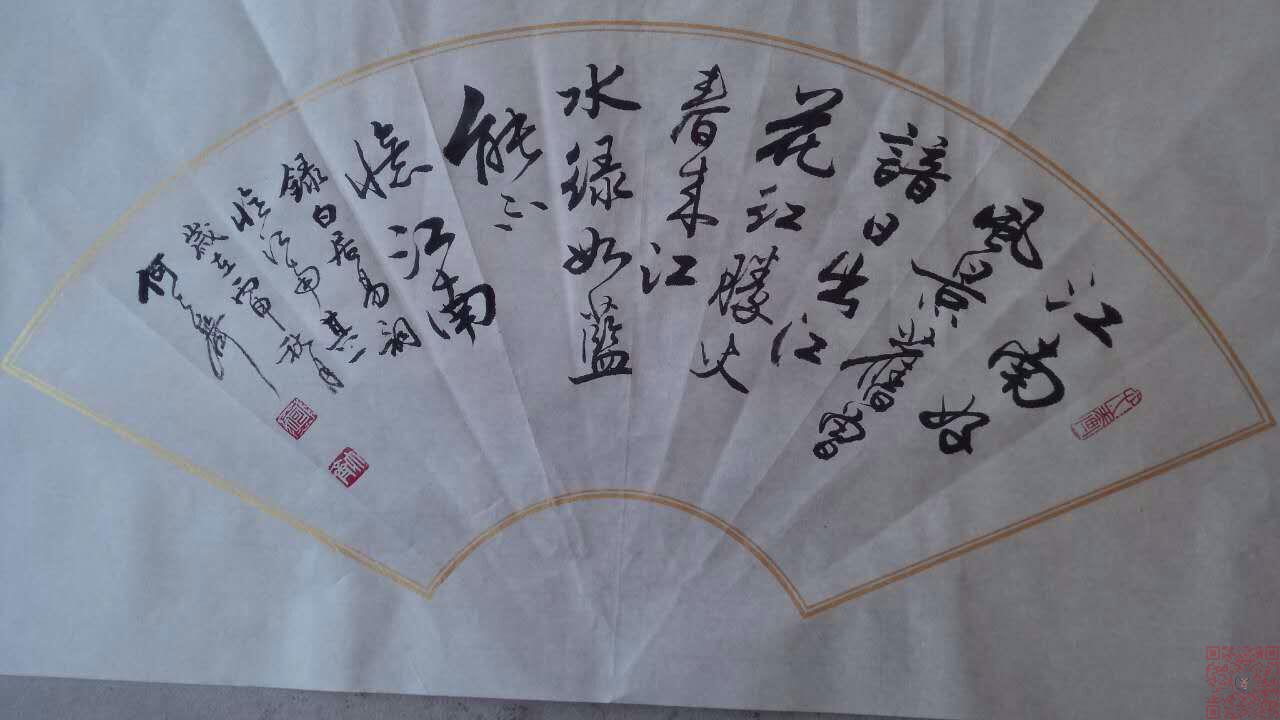 江南好
風景舊曾
諳日出江
花红勝火
春来江
水绿如藍
能不
憶江南
録白居易詞
憶江南其一
歲在丙申秋月
何